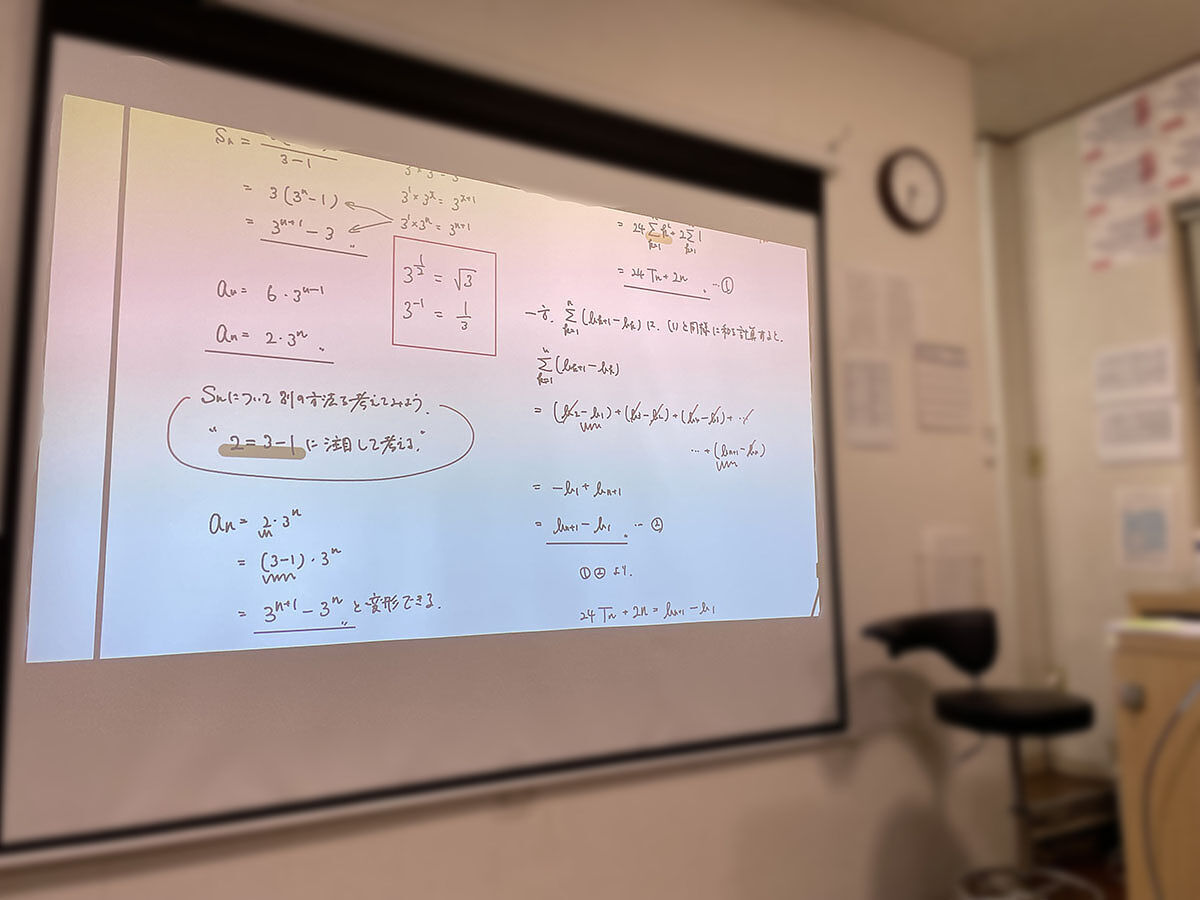 Sn =
3-1
= 3(3ⁿ-1)
= 3ⁿ⁺¹-3
3¹×3ˣ = 3ˣ⁺¹
3¹×3ⁿ = 3ⁿ⁺¹
3^(1/2) = √3
3⁻¹ = 1/3
an = 6・3ⁿ⁻¹
an = 2・3ⁿ
Snについて別の方法を考えてみよう.
"2=3-1に注目して考える."
an = 2・3ⁿ
= (3-1)・3ⁿ
= 3ⁿ⁺¹-3ⁿ と変形できる.
= 24 Σ k² + 2 Σ 1
k=1 k=1
= 24Tn+2n … ①
一方, Σ(k=1→n) (bk+1-bk) は, (1)と同様に和を計算すると,
Σ(k=1→n) (bk+1-bk)
= (b2-b1)+(b3-b2)+(b4-b3)+…
…+(bn+1-bn)
= -b1+bn+1
= bn+1-b1 … ②
①②より,
24Tn+2n = bn+1-b1